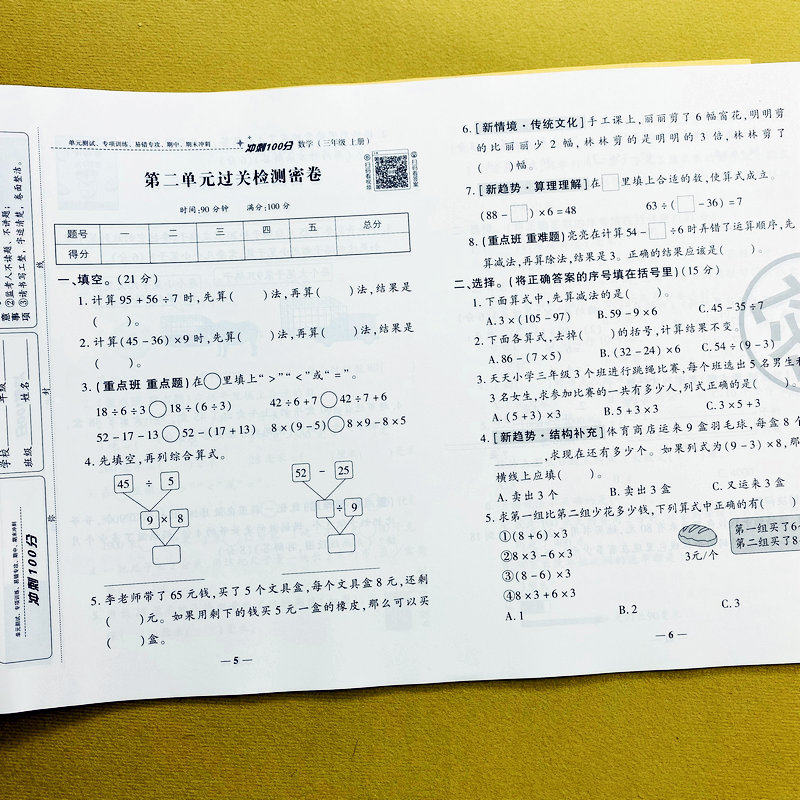 单元测试、专项训练、易错专攻、期中、期末冲刺 冲刺100分 数学(三年级 上册)
第二单元过关检测密卷
时间:90分钟 满分:100分
题号 一 二 三 四 五 总分
得分
一、填空。(21分)
1. 计算95+56÷7时,先算( )法,再算( )法,结果是
( )。
2. 计算(45-36)×9时,先算( )法,再算( )法,结果是
( )。
3. (重点班 重点题)在○里填上“>”“<”或“=”。
18÷6÷3○18÷(6÷3) 42÷6+7○42÷7+6
52-17-13○52-(17+13) 8×(9-5)○8×9-8×5
4. 先填空,再列综合算式。
45 ÷ 5 52 - 25
9 × 8 □ ÷ 9
5. 李老师带了65元钱,买了5个文具盒,每个文具盒8元,还剩
( )元。如果用剩下的钱买5元一盒的橡皮,那么可以买
( )盒。
— 5 —
6. [新情境·传统文化]手工课上,丽丽剪了6幅窗花,明明剪
的比丽丽少2幅,林林剪的是明明的3倍,林林剪了
( )幅。
7. [新趋势·算理理解]在□里填上合适的数,使算式成立。
(88-□)×6=48 63÷(□-36)=7
8. (重点班 重难题)亮亮在计算54-□÷6时弄错了运算顺序,先
算减法,再算除法,结果是3。正确的结果应该是( )。
二、选择。(将正确答案的序号填在括号里)(15分)
1. 下面算式中,先算减法的是( )。
A. 3×(105-97) B. 59-9×6 C. 45-35÷7
2. 下面各算式,去掉( )的括号,计算结果不变。
A. 86-(7×5) B. (32-24)×6 C. 54÷(9-3)
3. 天天小学三年级3个班进行跳绳比赛,每个班选出5名男生和
3名女生,求参加比赛的一共有多少人,列式正确的是( )。
A. (5+3)×3 B. 5+3×3 C. 3×5+3
4. [新趋势·结构补充]体育商店运来9盒羽毛球,每盒8个
,求现在还有多少个。如果列式为(9-3)×8,那
横线上应填( )。
A. 卖出3个 B. 卖出3盒 C. 又运来3盒
5. 求第一组比第二组少花多少钱,下列算式中正确的有( )
①(8+6)×3
②8×3-6×3
③(8-6)×3
④8×3+6×3
3元/个
第一组买了6
第二组买了8
A. 1 B. 2 C. 3
— 6 —
扫码看视频
扫码看答案
意事项
②监考人不读题、不讲题;
③请书写工整,字迹清楚,卷面整洁。
线
封
年级
姓名
学校
班级
单元测试、专项训练、易错专攻、期中、期末冲刺
冲刺100分